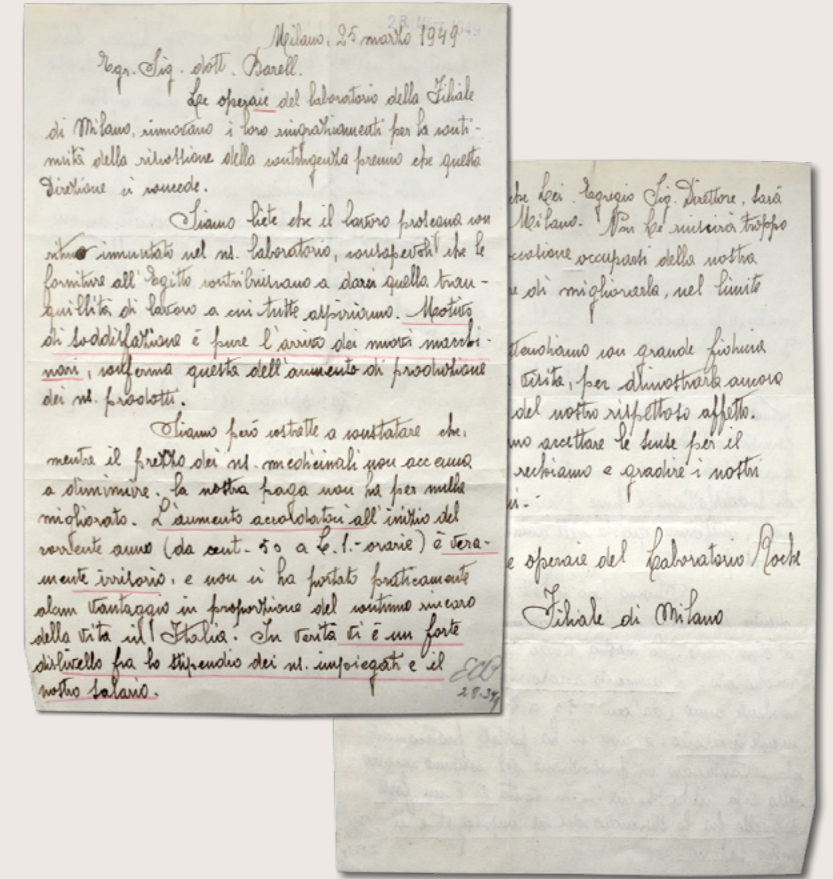 28. März 1949
Milano, 25 marzo 1949
Egr. Sig. dott. Barell.
Le operaie del laboratorio della Filiale
di Milano, rinnovano i loro ringraziamenti per la conti-
nuità della riscossione della contingenza premio che questa
Direzione ci concede.
Siamo liete che il lavoro prosegua con
ritmo immutato nel ns. laboratorio, consapevoli che le
forniture all'Egitto contribuiscano a darci quella tran-
quillità di lavoro a cui tutte aspiriamo. Motivo
di soddisfazione è pure l'arrivo dei nuovi macchi-
nari, conferma questa dell'aumento di produzione
dei ns. prodotti.
Siamo però costrette a constatare che,
mentre il prezzo dei ns. medicinali non accenna
a diminuire, la nostra paga non ha per nulla
migliorato. L'aumento accordatoci all'inizio del
corrente anno (da cent. 50 a L. 1.- orarie) è vera-
mente irrisorio, e non ci ha portato praticamente
alcun vantaggio in proporzione del continuo rincaro
della vita in Italia. In verità vi è un forte
dislivello fra lo stipendio dei ns. impiegati e il
nostro salario.
28.3.49
che Lei, Egregio Sig. Direttore, sarà
Milano. Non Le rincrescerà troppo
occasione occuparsi della nostra
e di migliorarla, nel limite
attendiamo con grande fiducia
visita, per dimostrarLe ancora
del nostro rispettoso affetto.
accettare le scuse per il
rechiamo e gradire i nostri
e operaie del Laboratorio Roche
Filiale di Milano